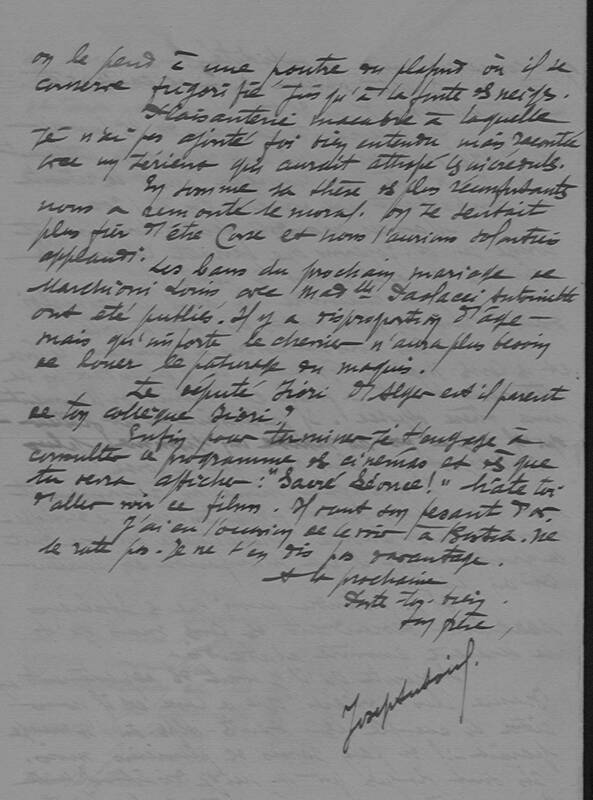 on le pend à une poutre du plafond où il se
conserve frigorifié jusqu'à la fonte des neiges.
Plaisanterie macabre à laquelle
je n'ai pas ajouté foi bien entendu mais racontée
avec un sérieux qui aurait attrapé les incrédules.
En somme sa thèse des plus réconfortants
nous a remonté le moral. On se sentait
plus fier d'être Corse et nous l'aurions volontiers
applaudi.
Les bans du prochain mariage de
Marchioni Louis avec Mad^lle Antoinette
ont été publiés. Il y a disproportion d'âge -
mais qu'importe le chevrier n'aura plus besoin
de louer le pâturage du maquis.
Le député Fiori d'Alger est il parent
de ton collègue Fiori ?
Enfin pour terminer je t'engage à
consulter le programme des cinémas et dès que
tu verra afficher : "Sacré Léonce !" hâte toi
d'aller voir ce films. Il vaut son pesant d'or.
J'ai eu l'occasion de le voir à Bastia. Ne
le rate pas. Je ne t'en dis pas davantage.
A la prochaine
Porte-toi bien.
Ton frère,